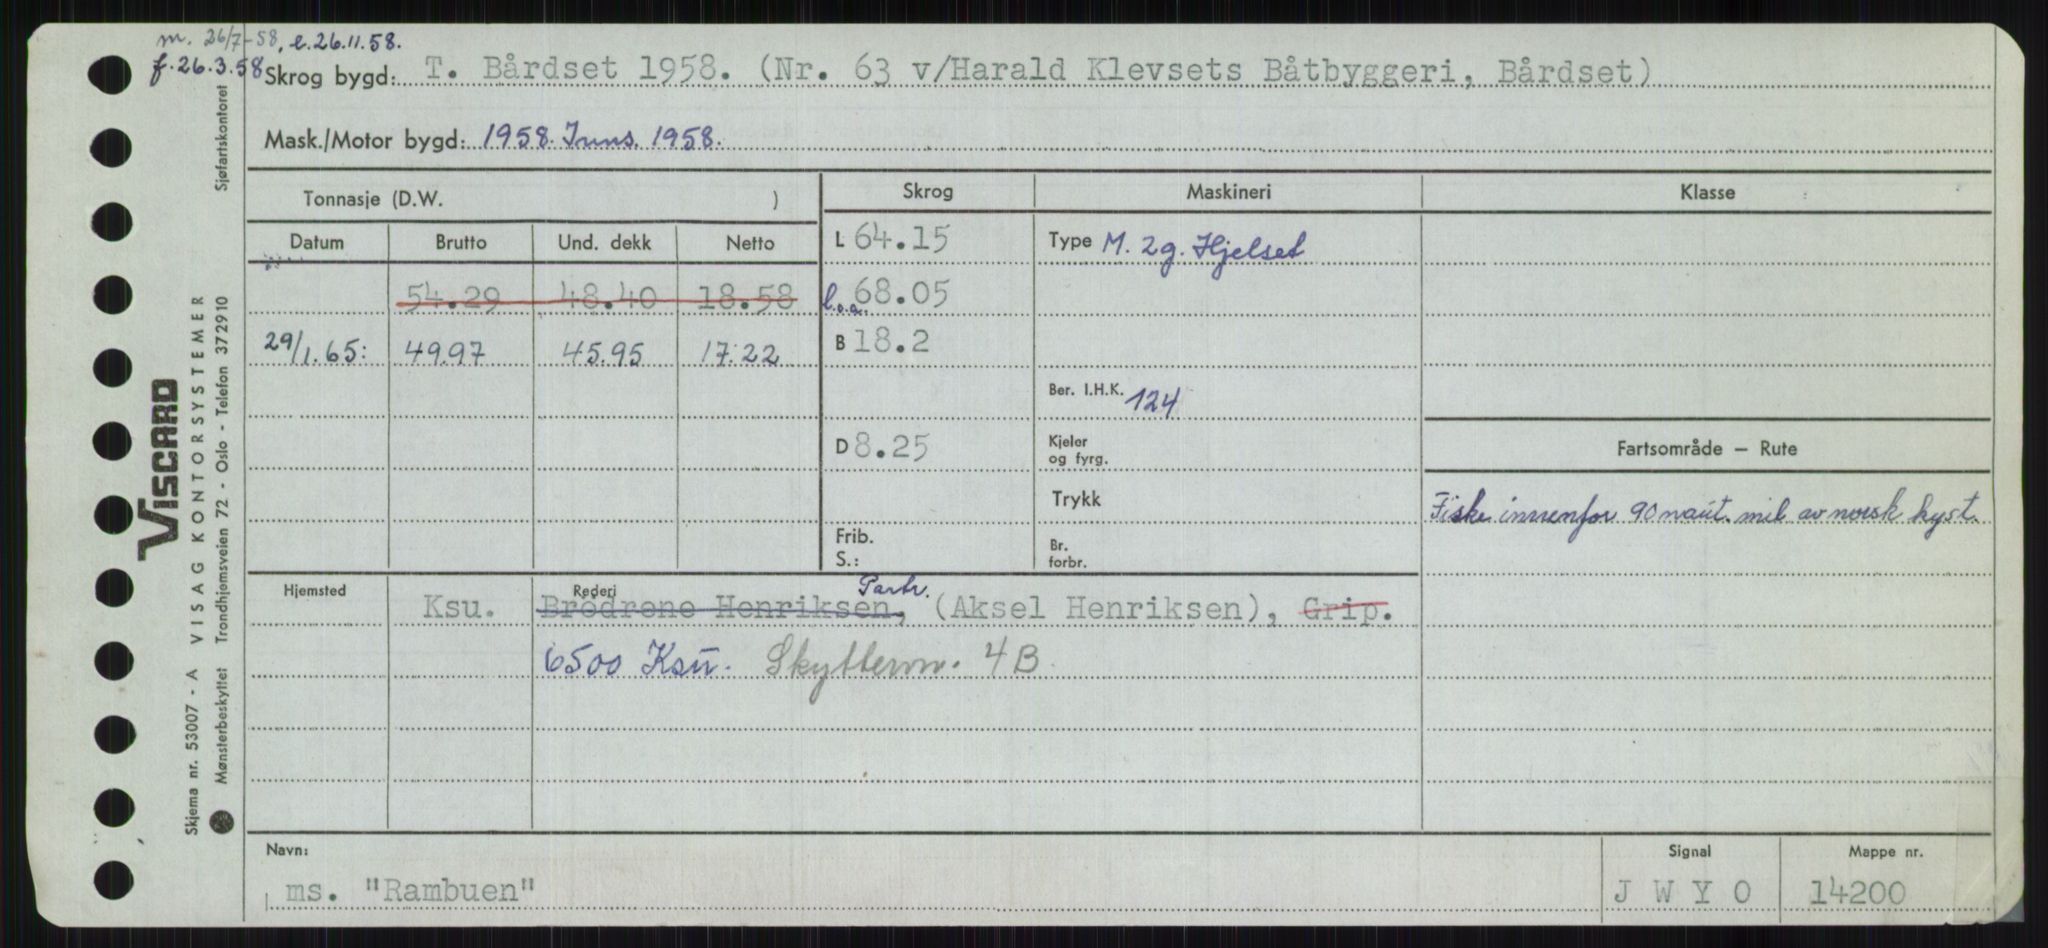 m. 26/7-58, e.26.11.58.
f.26.3.58
Skrog bygd: T. Bårdset 1958. (Nr. 63 v/Harald Klevsets Båtbyggeri, Bårdset)
Mask./Motor bygd: 1958. Inns. 1958.
Tonnasje (D.W. )
Skrog
Maskineri
Klasse
Datum Brutto Und. dekk Netto
L 64.15
Type M. 2g. Hjelset
54.29 48.40 18.58
l.o.a. 68.05
29/1.65: 49.97 45.95 17.22
B 18.2
Ber. I.H.K. 124
D 8.25
Kjeler
og fyrg.
Fartsområde — Rute
Trykk
Fiske innenfor 90 naut. mil av norsk kyst.
Frib.
S.:
Br.
forbr.
Hjemsted
Rederi
Partr.
Ksu. Brødrene Henriksen, (Aksel Henriksen), Grip.
6500 Ksu. Skytterv. 4B.
Navn:
ms. "Rambuen"
Signal
J W Y O
Mappe nr.
14200
VISCARD
Skjema nr. 53007 - A VISAG KONTORSYSTEMER
Mønsterbeskyttet Trondhjemsveien 72 - Oslo - Telefon 372910 Sjøfartskontoret